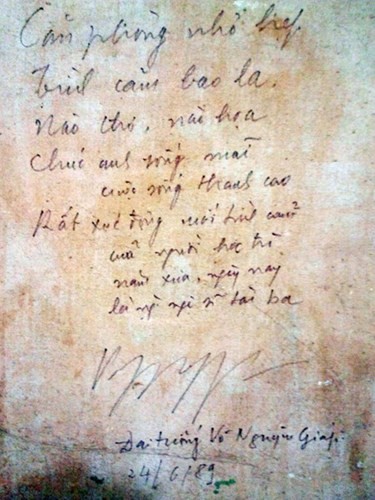 Căn phòng nhỏ hẹp
Tình cảm bao la.
Nào thơ, nào họa
Chúc anh sống mãi
cuộc sống thanh cao
Rất xúc động với tình cảm
của người học trò
năm xưa, ngày nay
là nghệ sĩ tài ba
Đại tướng Võ Nguyên Giáp.
24/6/89